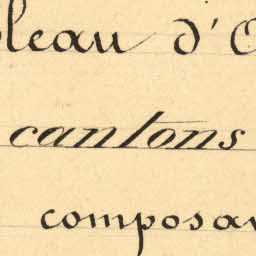 leau d'
cantons
composa